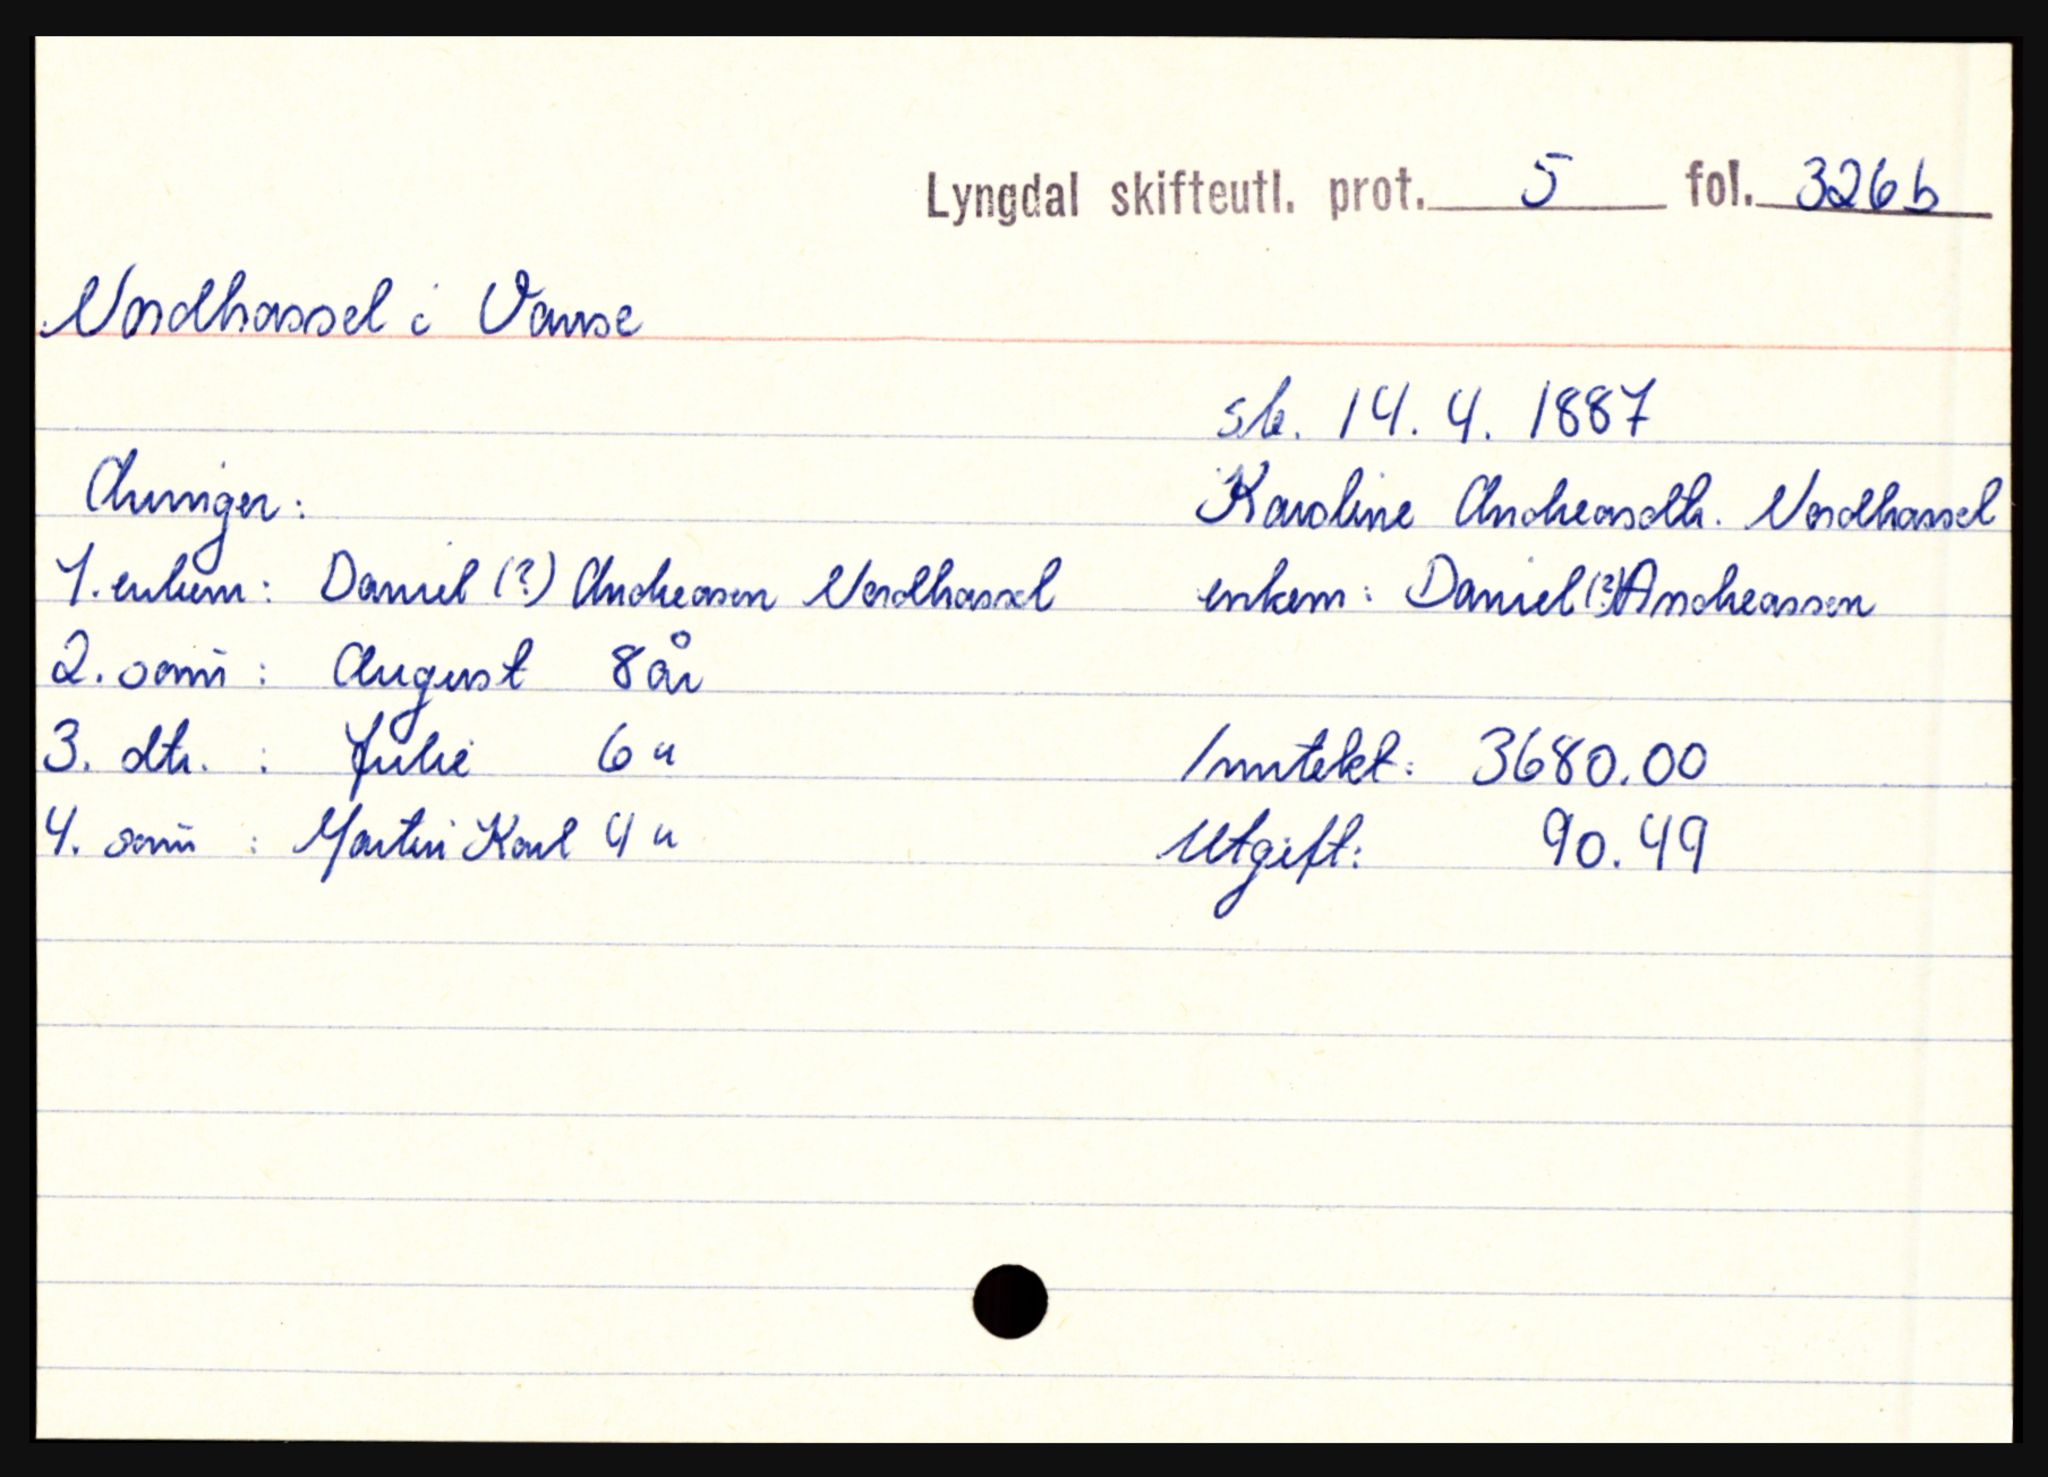 Lyngdal skifteutl. prot. 5 fol. 326b
Nordhassel i Vanse
sk. 14.4.1887
Arvinger:
Karoline Andreasdtr. Nordhassel
1. enkem: Daniel (?) Andreasen Nordhassel
enkem: Daniel (?) Andreassen
2. sønn: August 8 år
3. dtr. : Julie 6 "
Inntekt: 3680.00
4. sønn : Martin Karl 4 "
Utgift: 90.49